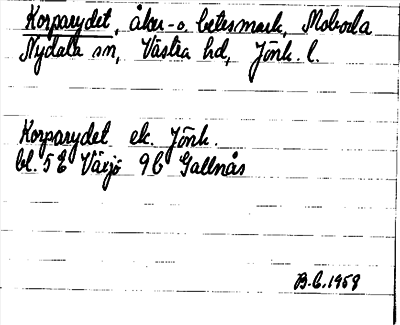 Korparydet, åker- o. betesmark, Moboda
Nydala sn, Västra hd, Jönk. l.
Korparydet ek. Jönk.
bl. 5 E Växjö 9 b Gallnås
B.C. 1959